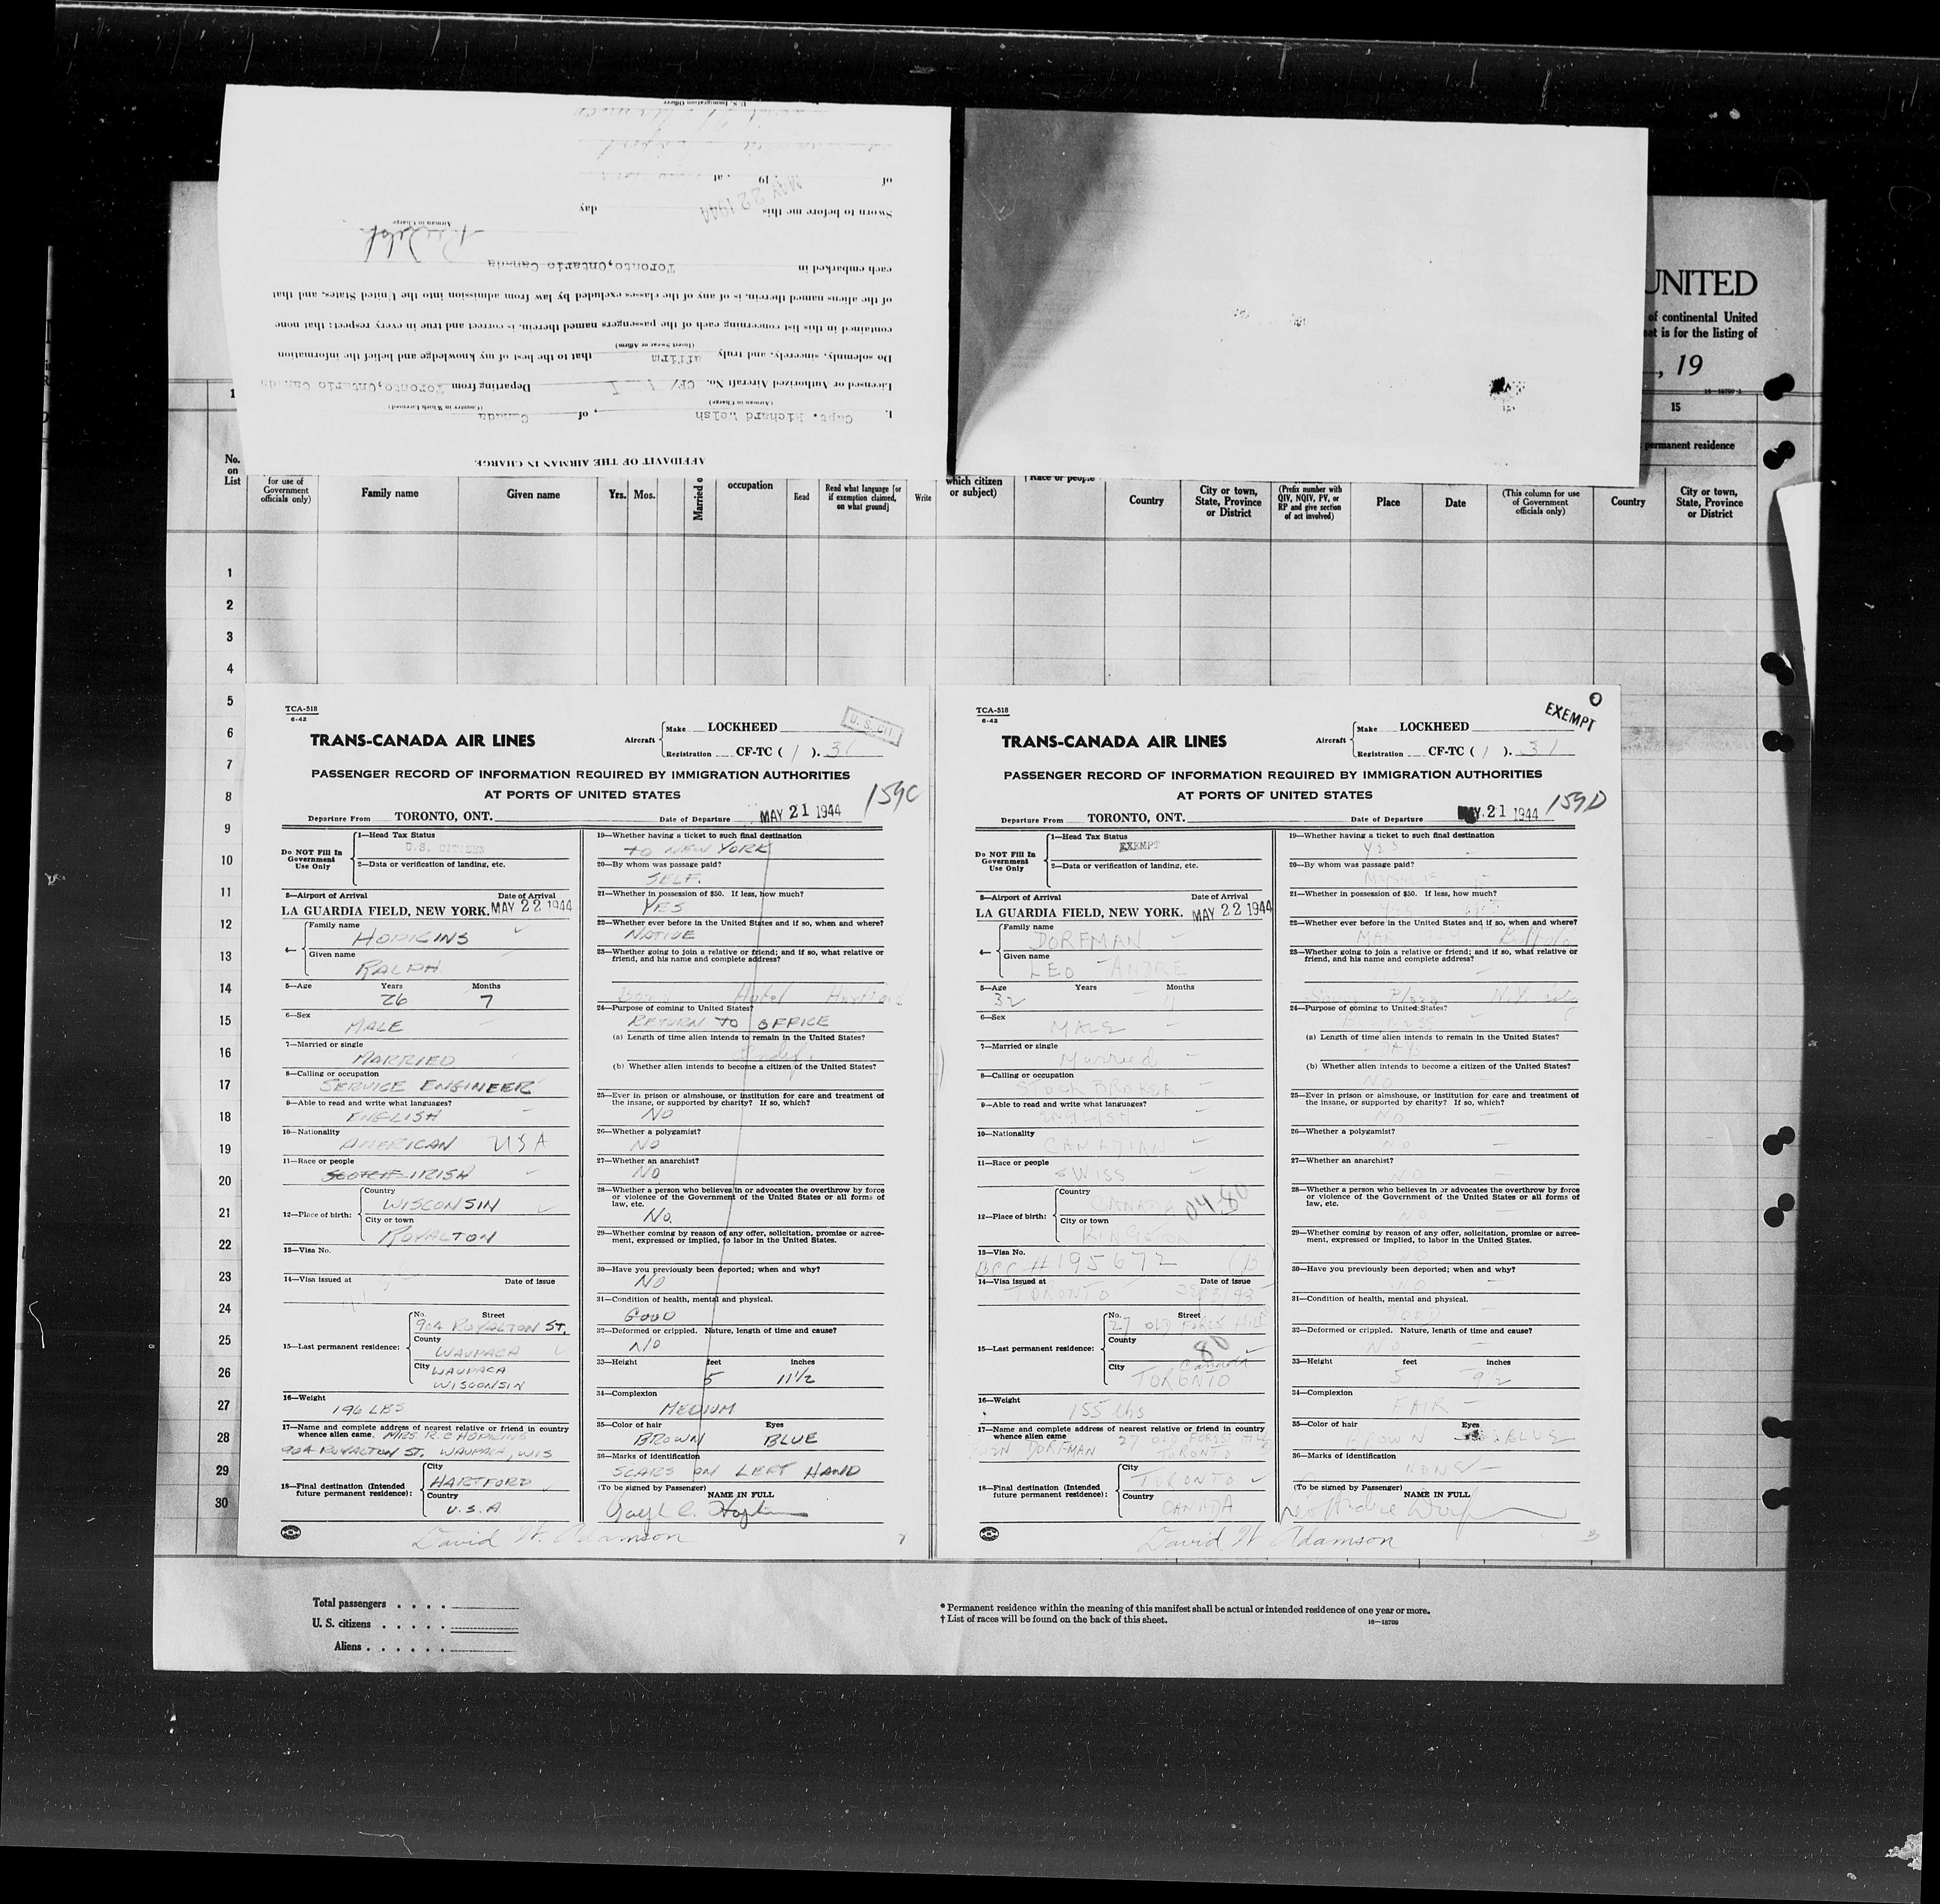 AFFIDAVIT OF THE AIRMAN IN CHARGE
I, Capt. Richard Welsh, of Canada
(Airman in Charge) (Country in Which Licensed)
Licensed or Authorized Aircraft No. CF/ Departing from Toronto, Ontario Canada
Do solemnly, sincerely, and truly affirm that to the best of my knowledge and belief the information
(Insert Swear or Affirm)
contained in this list concerning each of the passengers named therein, is correct and true in every respect; that none
of the aliens named therein, is of any of the classes excluded by law from admission into the United States, and that
each embarked in Toronto, Ontario Canada
Airman in Charge
Sworn to before me this day
MAY 22 1944
of 19 at
U.S. Immigration Officer
UNITED
of continental United
is for the listing of
, 19
16—18709-1
1
15
permanent residence
No. on List
for use of Government officials only)
Family name
Given name
Yrs. Mos.
Married o
occupation
Read
Read what language [or if exemption claimed, on what ground]
Write
which citizen or subject)
Race or people
Country
City or town, State, Province or District
(Prefix number with QIV, NQIV, PV, or RP and give section of act involved)
Place
Date
(This column for use of Government officials only)
Country
City or town, State, Province or District
1
2
3
4
5
6
7
8
9
10
11
12
13
14
15
16
17
18
19
20
21
22
23
24
25
26
27
28
29
30
TCA-518
6-42
TRANS-CANADA AIR LINES
Aircraft
Make LOCKHEED
Registration CF-TC ( / ). 31
U. S. CIT.
PASSENGER RECORD OF INFORMATION REQUIRED BY IMMIGRATION AUTHORITIES
AT PORTS OF UNITED STATES
159C
Departure From TORONTO, ONT. Date of Departure MAY 21 1944
Do NOT Fill In Government Use Only
1—Head Tax Status
U.S. CITIZEN
2—Data or verification of landing, etc.
3—Airport of Arrival Date of Arrival
LA GUARDIA FIELD, NEW YORK. MAY 22 1944
4—
Family name
HOPKINS
Given name
RALPH
5—Age Years Months
26 7
6—Sex
MALE
7—Married or single
MARRIED
8—Calling or occupation
SERVICE ENGINEER
9—Able to read and write what languages?
ENGLISH
10—Nationality
AMERICAN USA
11—Race or people
SCOTCH IRISH
12—Place of birth:
Country
WISCONSIN
City or town
ROYALTON
13—Visa No.
14—Visa issued at Date of issue
15—Last permanent residence:
No. Street
904 ROYALTON ST.
County
WAUPACA
City WAUPACA
WISCONSIN
16—Weight
196 LBS
17—Name and complete address of nearest relative or friend in country
whence alien came. MRS. R.C HOPKINS
904 ROYALTON ST, WAUPACA, WIS
18—Final destination (Intended future permanent residence):
City
HARTFORD
Country
U.S.A.
19—Whether having a ticket to such final destination
TO NEW YORK
20—By whom was passage paid?
SELF.
21—Whether in possession of $50. If less, how much?
YES
22—Whether ever before in the United States and if so, when and where?
NATIVE
23—Whether going to join a relative or friend; and if so, what relative or
friend, and his name and complete address?
Hotel Hartford
24—Purpose of coming to United States?
RETURN TO OFFICE
(a) Length of time alien intends to remain in the United States?
Indef.
(b) Whether alien intends to become a citizen of the United States?
25—Ever in prison or almshouse, or institution for care and treatment of
the insane, or supported by charity? If so, which?
NO
26—Whether a polygamist?
NO
27—Whether an anarchist?
NO
28—Whether a person who believes in or advocates the overthrow by force
or violence of the Government of the United States or all forms of
law, etc.
NO.
29—Whether coming by reason of any offer, solicitation, promise or agree-
ment, expressed or implied, to labor in the United States.
30—Have you previously been deported; when and why?
NO
31—Condition of health, mental and physical.
GOOD
32—Deformed or crippled. Nature, length of time and cause?
NO
33—Height feet inches
5 11½
34—Complexion
MEDIUM
35—Color of hair Eyes
BROWN BLUE
36—Marks of identification
SCARS ON LEFT HAND
(To be signed by Passenger) NAME IN FULL
David W. Adamson
TCA-518
6-42
EXEMPT
TRANS-CANADA AIR LINES
Aircraft
Make LOCKHEED
Registration CF-TC ( / ). 31
PASSENGER RECORD OF INFORMATION REQUIRED BY IMMIGRATION AUTHORITIES
AT PORTS OF UNITED STATES
159D
Departure From TORONTO, ONT. Date of Departure MAY 21 1944
Do NOT Fill In Government Use Only
1—Head Tax Status
EXEMPT
2—Data or verification of landing, etc.
3—Airport of Arrival Date of Arrival
LA GUARDIA FIELD, NEW YORK. MAY 22 1944
4—
Family name
DORFMAN
Given name
LEO ANDRE
5—Age Years Months
32
6—Sex
MALE
7—Married or single
Married
8—Calling or occupation
STOCK BROKER
9—Able to read and write what languages?
ENGLISH
10—Nationality
CANADIAN
11—Race or people
SWISS
12—Place of birth:
Country
CANADA 04-80
City or town
KINGSTON
13—Visa No.
BCC #195672 (B)
14—Visa issued at Date of issue
TORONTO
15—Last permanent residence:
No. Street
27 OLD FOREST HILL
County
80
City Canada
TORONTO
16—Weight
155 lbs
17—Name and complete address of nearest relative or friend in country
whence alien came 27 OLD FOREST HILL
DORFMAN TORONTO
18—Final destination (Intended future permanent residence):
City
TORONTO
Country
CANADA
19—Whether having a ticket to such final destination
YES
20—By whom was passage paid?
MYSELF
21—Whether in possession of $50. If less, how much?
22—Whether ever before in the United States and if so, when and where?
MAR Buffalo
23—Whether going to join a relative or friend; and if so, what relative or
friend, and his name and complete address?
Plaza N.Y
24—Purpose of coming to United States?
(a) Length of time alien intends to remain in the United States?
DAYS
(b) Whether alien intends to become a citizen of the United States?
NO
25—Ever in prison or almshouse, or institution for care and treatment of
the insane, or supported by charity? If so, which?
NO
26—Whether a polygamist?
NO
27—Whether an anarchist?
NO
28—Whether a person who believes in or advocates the overthrow by force
or violence of the Government of the United States or all forms of
law, etc.
NO
29—Whether coming by reason of any offer, solicitation, promise or agree-
ment, expressed or implied, to labor in the United States.
30—Have you previously been deported; when and why?
NO
31—Condition of health, mental and physical.
GOOD
32—Deformed or crippled. Nature, length of time and cause?
NO
33—Height feet inches
5 9½
34—Complexion
FAIR
35—Color of hair Eyes
BROWN BLUE
36—Marks of identification
NONE
(To be signed by Passenger) NAME IN FULL
David W Adamson
Total passengers . . . .
U. S. citizens . . . . .
Aliens . . . . . .
* Permanent residence within the meaning of this manifest shall be actual or intended residence of one year or more.
† List of races will be found on the back of this sheet.
16—18709